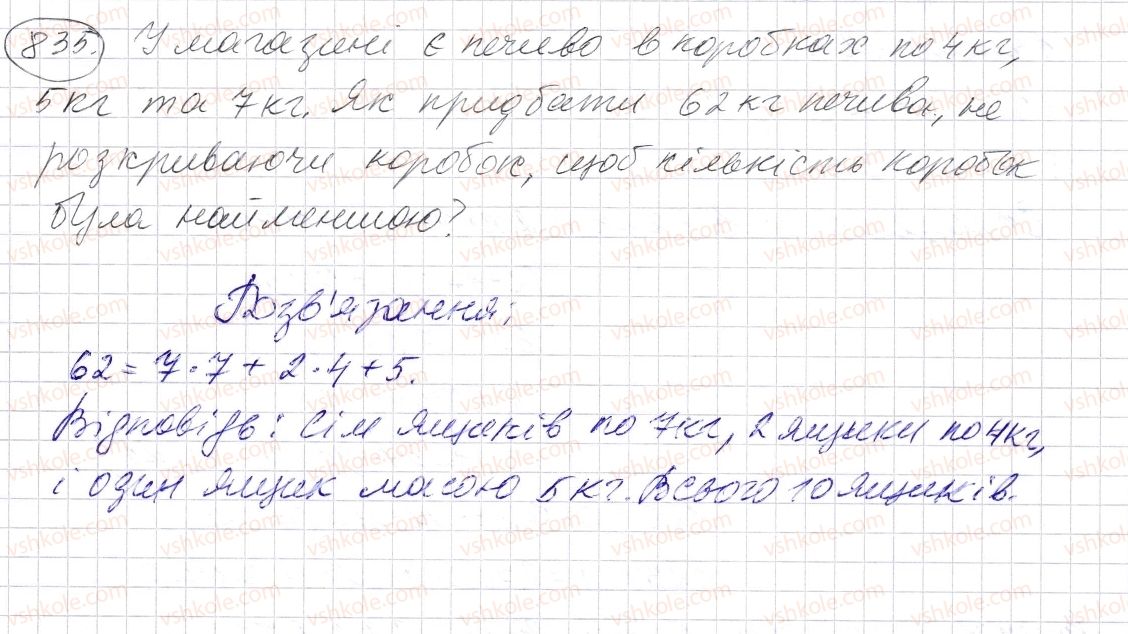 835. У магазині є печиво в коробках по 4 кг,
5 кг та 7 кг. Як придбати 62 кг печива, не
розкриваючи коробок, щоб кількість коробок
була найменшою?
Розв'язання:
62 = 7 · 7 + 2 · 4 + 5.
Відповідь: Сім ящиків по 7 кг, 2 ящики по 4 кг,
і один ящик масою 5 кг. Всього 10 ящиків.